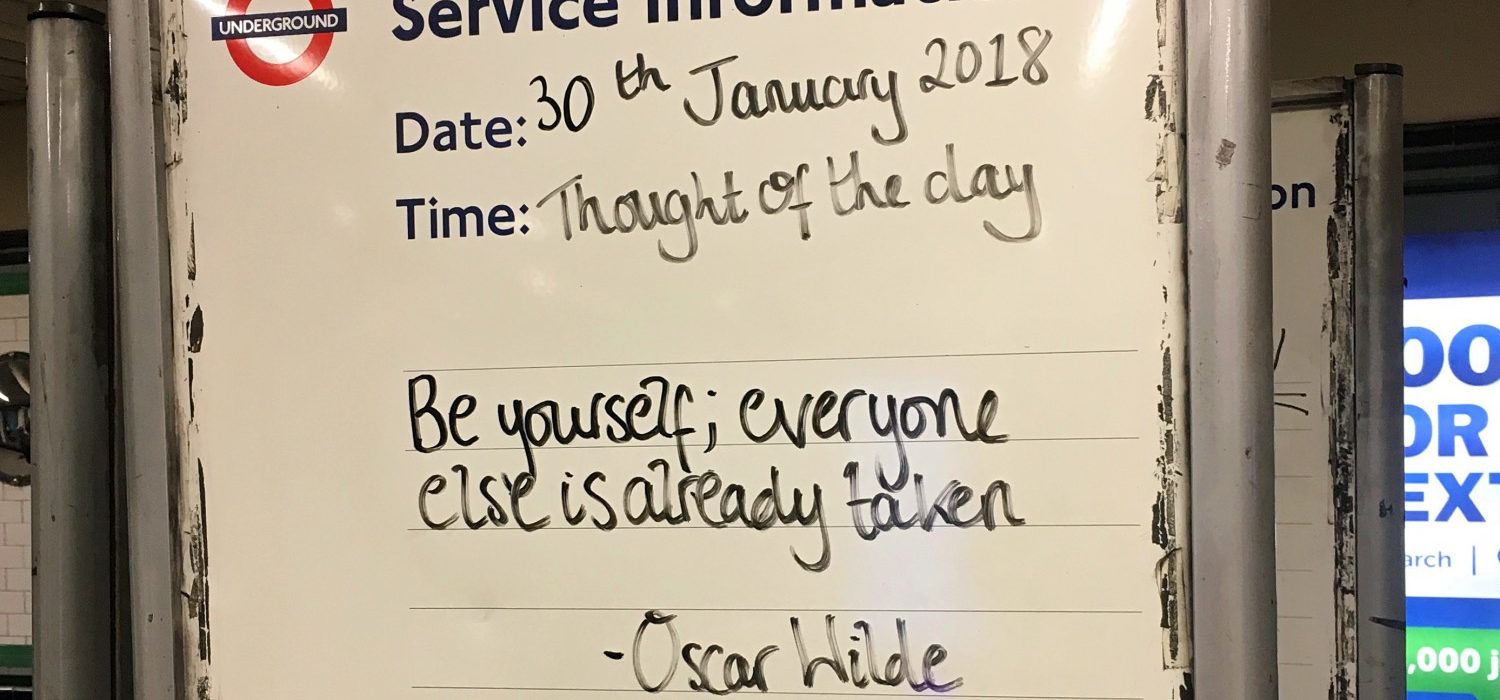 UNDERGROUND
Service
Date: 30th January 2018
Time: Thought of the day
Be yourself; everyone
else is already taken
- Oscar Wilde
on
OR
,000 j